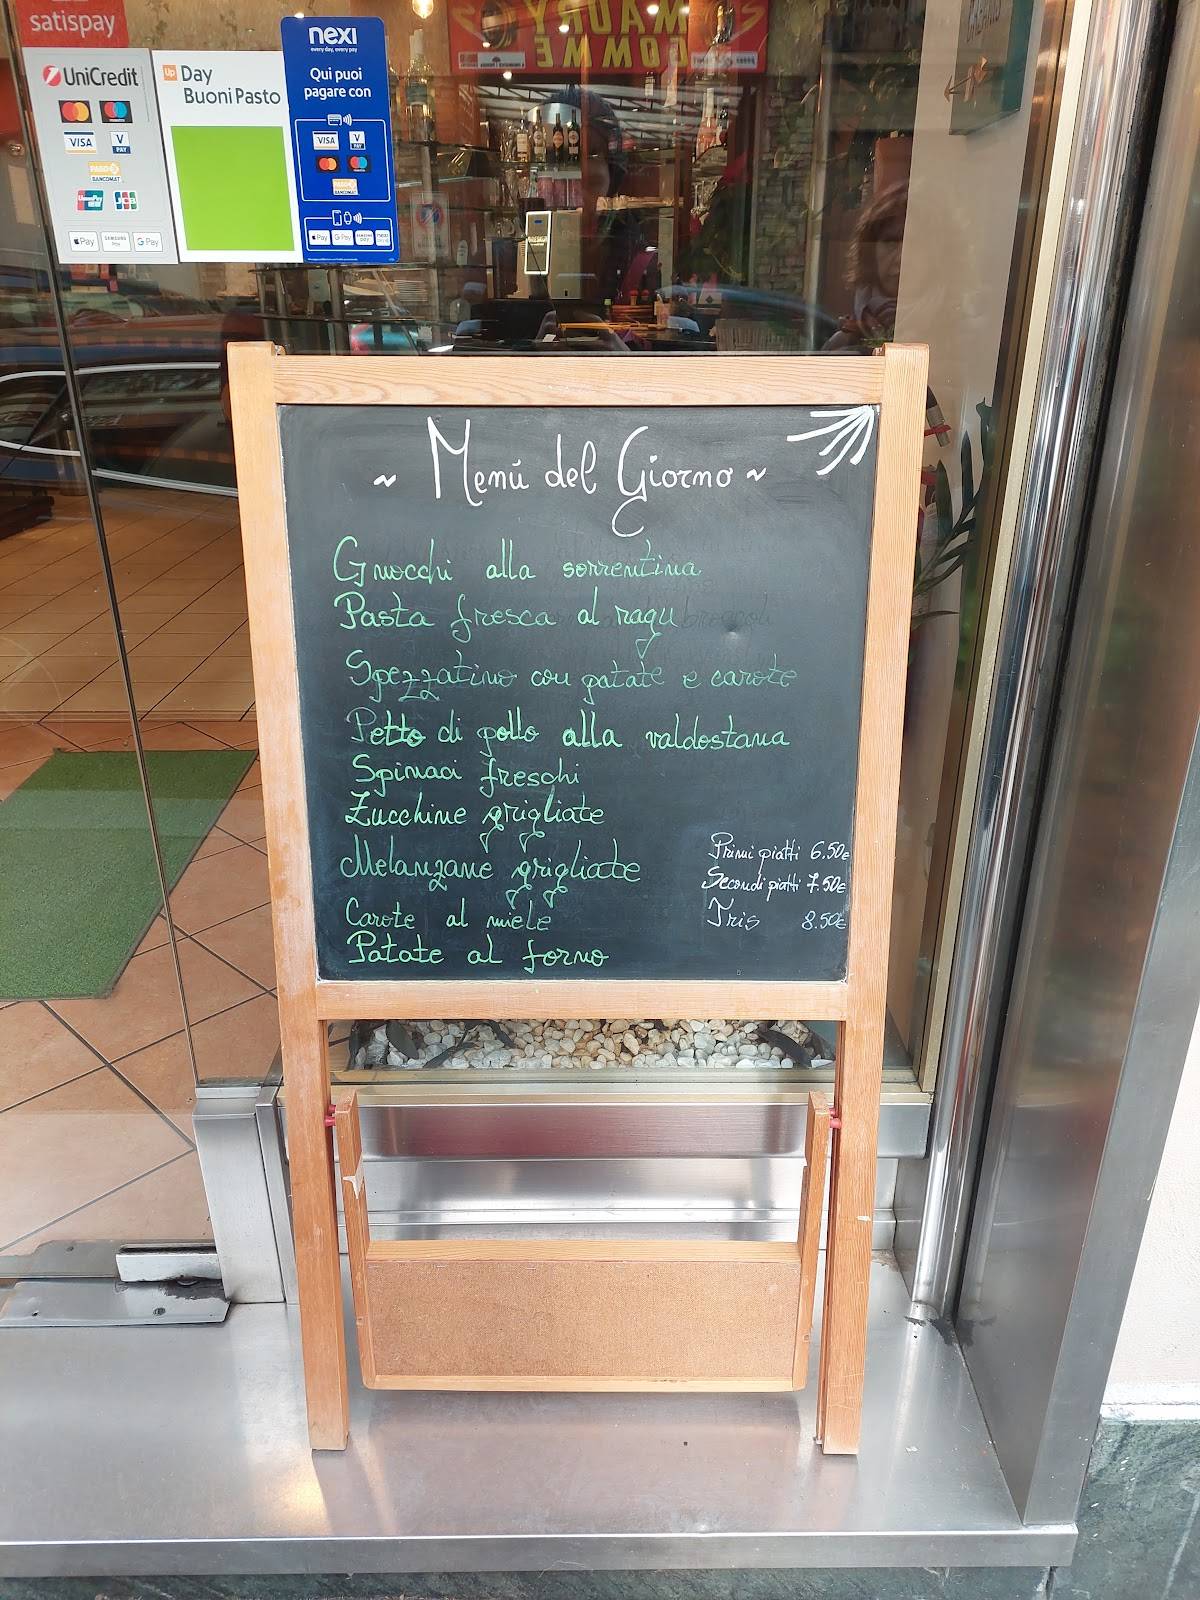 satispay
UniCredit
VISA
V PAY
BANCOMAT
JCB
Pay
SAMSUNG Pay
G Pay
Up Day
Buoni Pasto
nexi
every day, every pay
Qui puoi
pagare con
VISA
V PAY
BANCOMAT
Pay
G Pay
MAURY
GOMME
~ Menú del Giorno ~
Gnocchi alla sorrentina
Pasta fresca al ragu
Spezzatino con patate e carote
Petto di pollo alla valdostana
Spinaci freschi
Zucchine grigliate
Melanzane grigliate
Carote al miele
Patate al forno
Primi piatti 6.50€
Secondi piatti 7.50€
Tris 8.50€